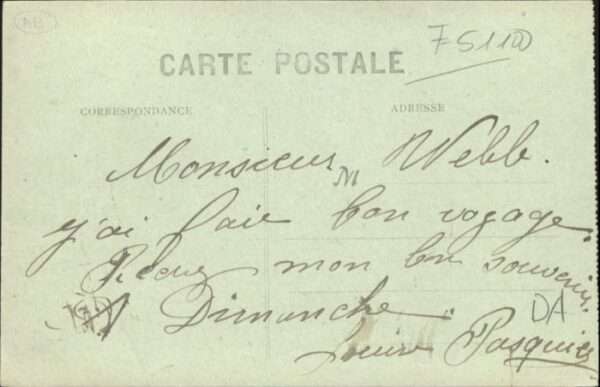 AB
75110
CARTE POSTALE
CORRESPONDANCE
ADRESSE
Monsieur Webb.
M
j'ai fait bon voyage.
mon bon souvenir.
à Dimanche.
DA
Louise Pasquier